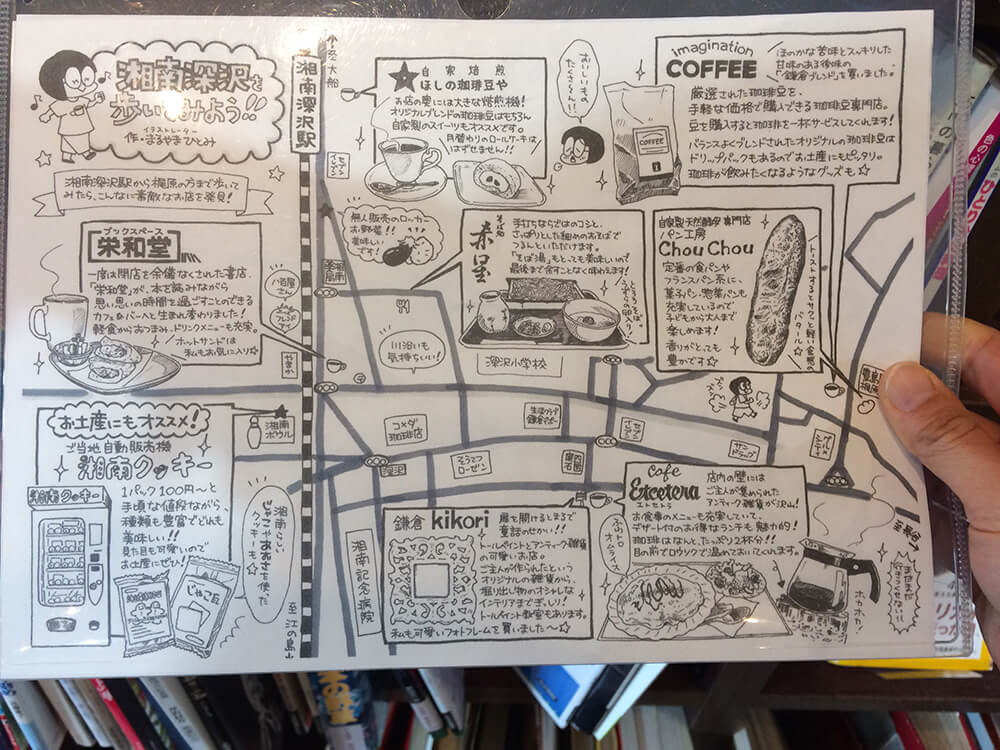 湘南深沢を
歩いてみよう!!
イラストレーター
作・まるやまひとみ
湘南深沢駅から梶原の方まで歩いて
みたら、こんなに素敵なお店を発見!
至大船
湘南深沢駅
自家焙煎
ほしの珈琲豆や
お店の奥には大きな焙煎機!
オリジナルブレンドの珈琲豆はもちろん
自家製のスイーツもオススメです。
月替わりのロールケーキは
はずせません!!
おいしいもの
たくさん〜い!!
COFFEE
imagination
COFFEE
ほのかな苦味とスッキリした
甘味のある後味の
「鎌倉ブレンド」を買いました。
厳選された珈琲豆を、
手軽な価格で購入できる珈琲豆専門店。
豆を購入すると珈琲を一杯サービスしてくれます!
バランスよくブレンドされたオリジナルの珈琲豆は
ドリップパックもあるのでお土産にもピッタリ。
珈琲が飲みたくなるようなグッズも☆
ブックスペース
栄和堂
一度は閉店を余儀なくされた書店、
「栄和堂」が、本を読みながら
思い思いの時間を過ごすことのできる
カフェ&バーへと生まれ変わりました!
軽食からおつまみ、ドリンクメニューも充実。
ホットサンドは
私もお気に入り☆
八百屋
さん
やまか
セブン
イレブン
無人販売のロッカー
お野菜!!
美味しい
です!
手打ちならではのコシと、
さっぱりとした細めのおそばで
つるんといただけます。
「そば湯」もとっても美味しいので
最後まで余すことなく味わえます!
自家製天然酵母専門店
パン工房
Chou Chou
定番の食パンや
フランスパン系に、
菓子パン・惣菜パンも
充実しているので
子どもから大人まで
楽しめます!
香りがとても
豊かです☆
トーストするとサクッと軽い食感の
バタール☆
川沿いも
気持ちいい!
深沢小学校
お土産にもオススメ!
ご当地自動販売機
湘南クッキー
湘南クッキー
1パック100円〜と
手頃な値段ながら、
種類も豊富でどれも
美味しい!!
見た目も可愛いので
お土産にぜひ!
じゃこ缶
湘南らしい
しらすやあおさを使った
クッキーも!
湘南
ボウル
至江の島
コメダ
珈琲店
そうてつ
ローゼン
セブン
イレブン
サンドラッグ
湘南記念病院
鎌倉 kikori
扉を開けるとまるで
童話のせかい!!
トールペイントとアンティーク雑貨
の可愛いお店。
ご主人が作られたという
オリジナルの雑貨から、
掘り出し物のオシャレな
インテリアまでぎっしり!
トールペイント教室もあります。
私も可愛いフォトフレームを買いました〜☆
cafe
Etcetera
エトセトラ
店内の壁には
ご主人が集められた
アンティーク雑貨が沢山!
お食事のメニューも充実していて、
デザート付のお得なランチも魅力的!
珈琲はなんと、たっぷり2杯分!!
目の前でロウソクで温めておいてくれます。
ふわトロ
オムライス
ホカホカ!